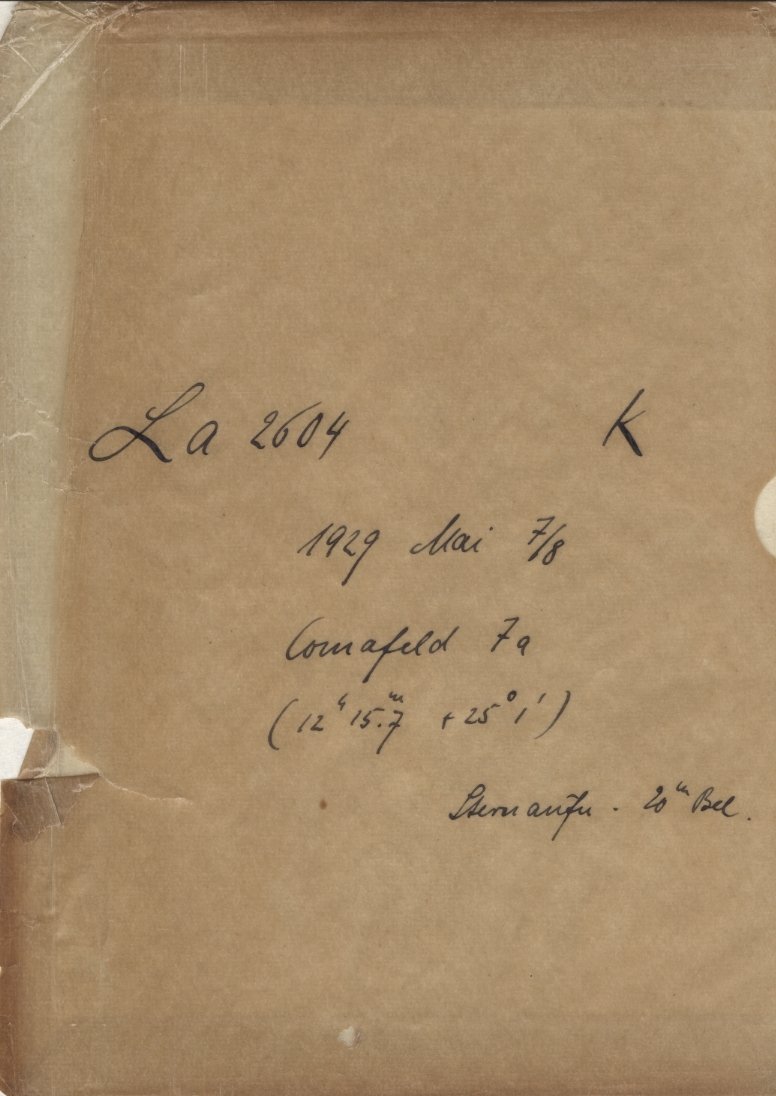 La 2604 K
1929 Mai 7/8
Comafeld 7a
(12ʰ 15.ᵐ7 +25° 1')
Sternaufn. 20ᵐ Bel.